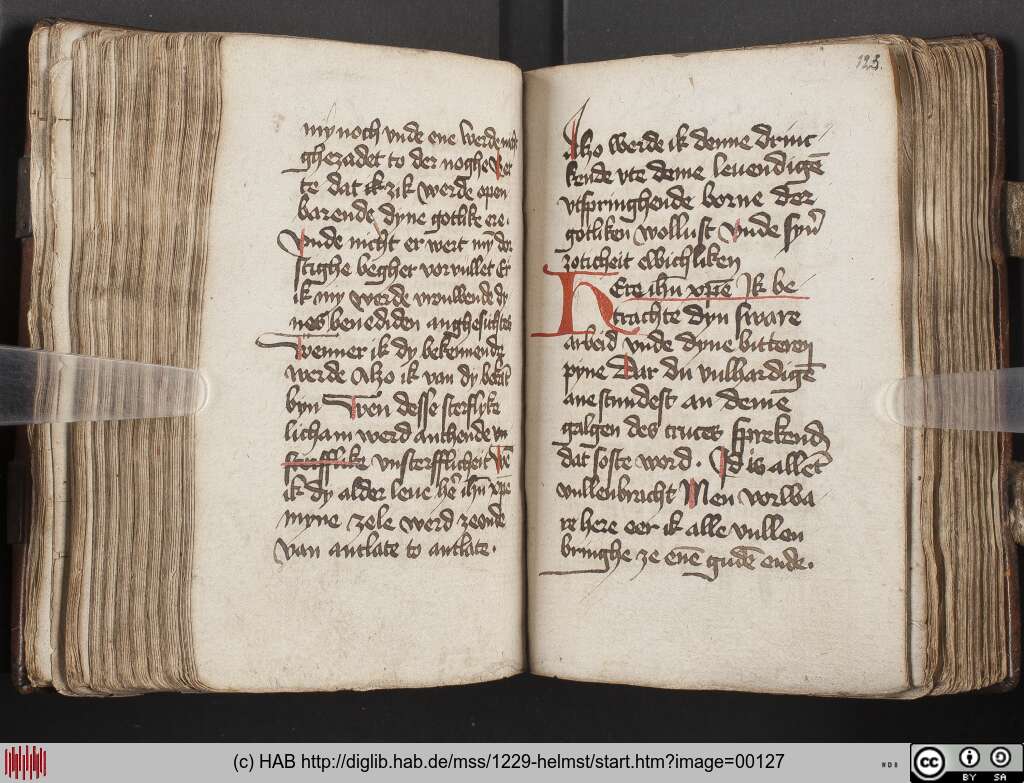 my noch vnde ene werde
ghezadet to der noghe wer
te dat ik zik werde open
barende dyne gotlike ere.
Vnde nicht er wert myn dor
stighe begher vorvullet Er
ik my werde vrouwende dy
nes benediden anghesichtes
Wenner ik dy bekennende
werde Alzo ik van dy bekāt
byn Wen desse sterflyke
licham werd anthende vn
sterfflike vnsterfflicheit Wē
ik dy alder leue hē ihū xp̄e
myne zele werd zeende
van antlate to antlate.
123.
Alzo werde ik denne drinc
kende vte deme leuendigē
vtspringhende borne der
gotliken wollust vnde syn̄
zoticheit ewichliken
HEre ihū xp̄e Ik be
trachte dyn sware
arbeid vnde dyne bitteren
pyne Dar du vulhardigē
ane stundest an deme
galgen des cruces sprekend
dat soste word. Id is allēt
vullenbracht Men vorlba
re here eer ik alle vullen
bringhe ze enē gudē ende.
(c) HAB http://diglib.hab.de/mss/1229-helmst/start.htm?image=00127
WDB
cc
BY SA